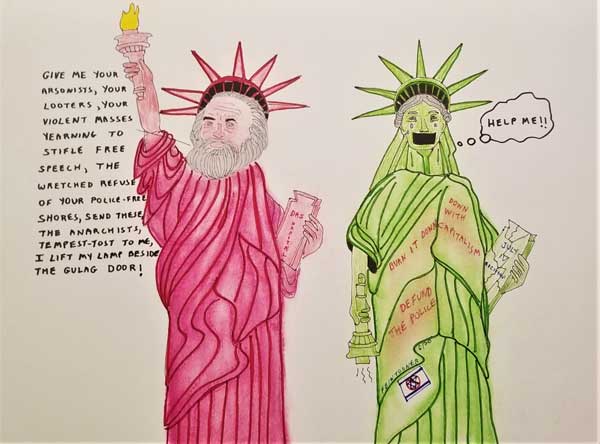 GIVE ME YOUR
ARSONISTS, YOUR
LOOTERS, YOUR
VIOLENT MASSES
YEARNING TO
STIFLE FREE
SPEECH, THE
WRETCHED REFUSE
OF YOUR POLICE-FREE
SHORES, SEND THESE
THE ANARCHISTS,
TEMPEST-TOST TO ME,
I LIFT MY LAMP BESIDE
THE GULAG DOOR!
DAS
KAPITAL
HELP ME!!
DOWN
WITH
CAPITALISM
BURN IT DOWN
DEFUND
THE POLICE
JULY
IV